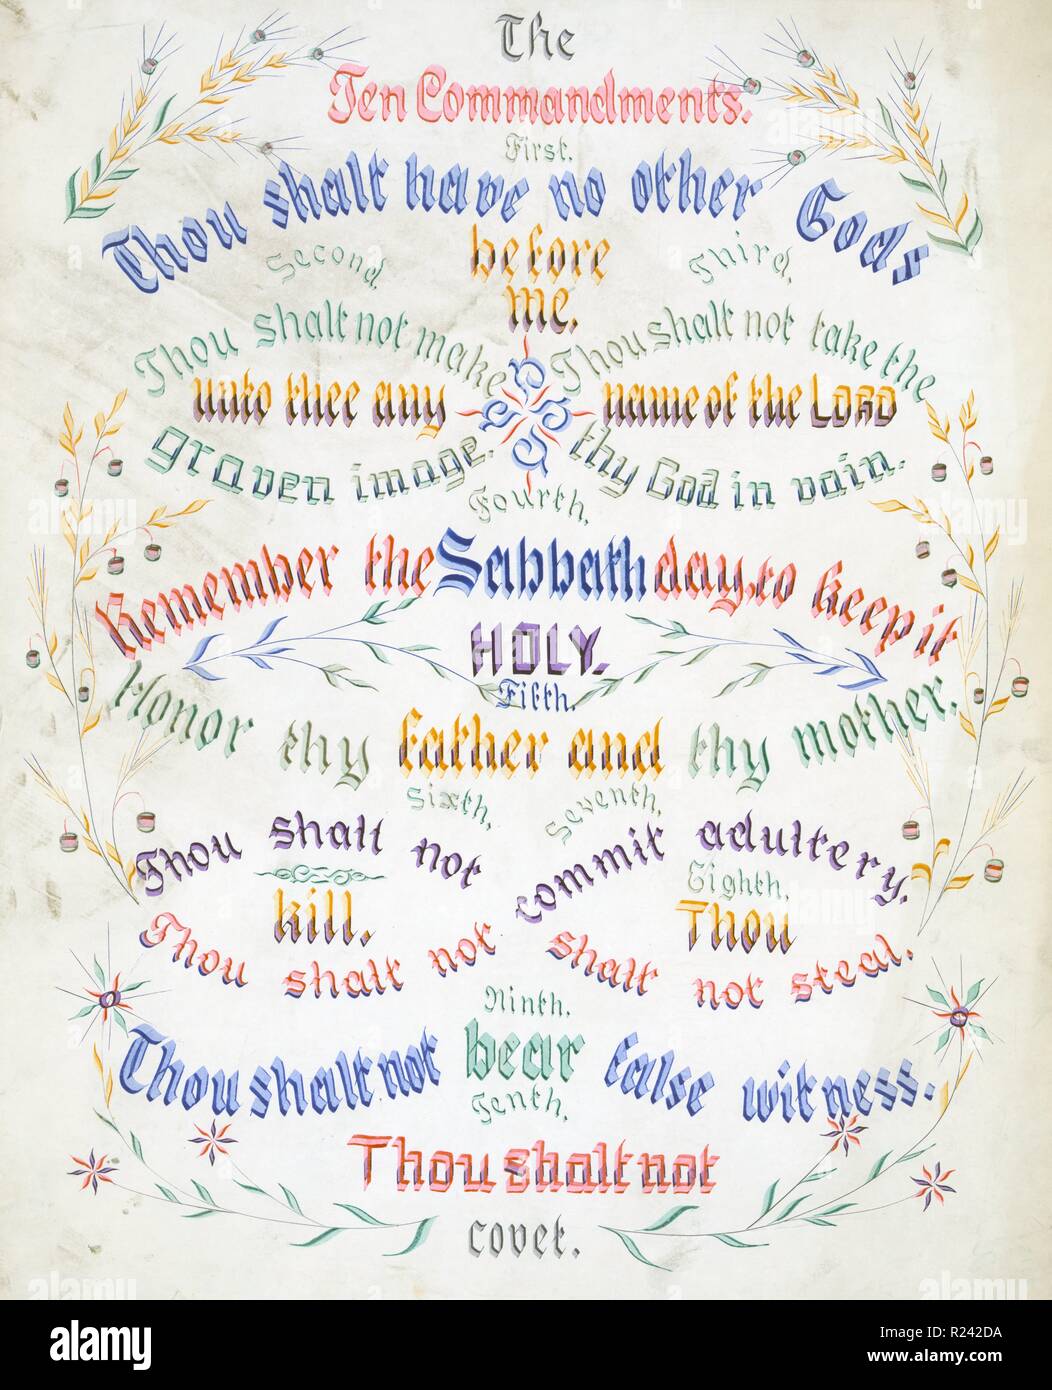 The
Ten Commandments.
First.
Thou shalt have no other Gods
before
me.
Second.
Thou shalt not make
unto thee any
graven image.
Third.
Thou shalt not take the
name of the LORD
thy God in vain.
Fourth.
Remember the Sabbath day, to keep it
HOLY.
Fifth.
Honor thy father and thy mother.
Sixth.
Thou shalt not
kill.
Seventh.
Thou shalt not
commit adultery.
Eighth.
Thou
shalt not steal.
Ninth.
Thou shalt not bear false witness.
Tenth.
Thou shalt not
covet.
alamy
Image ID: R242DA
www.alamy.com